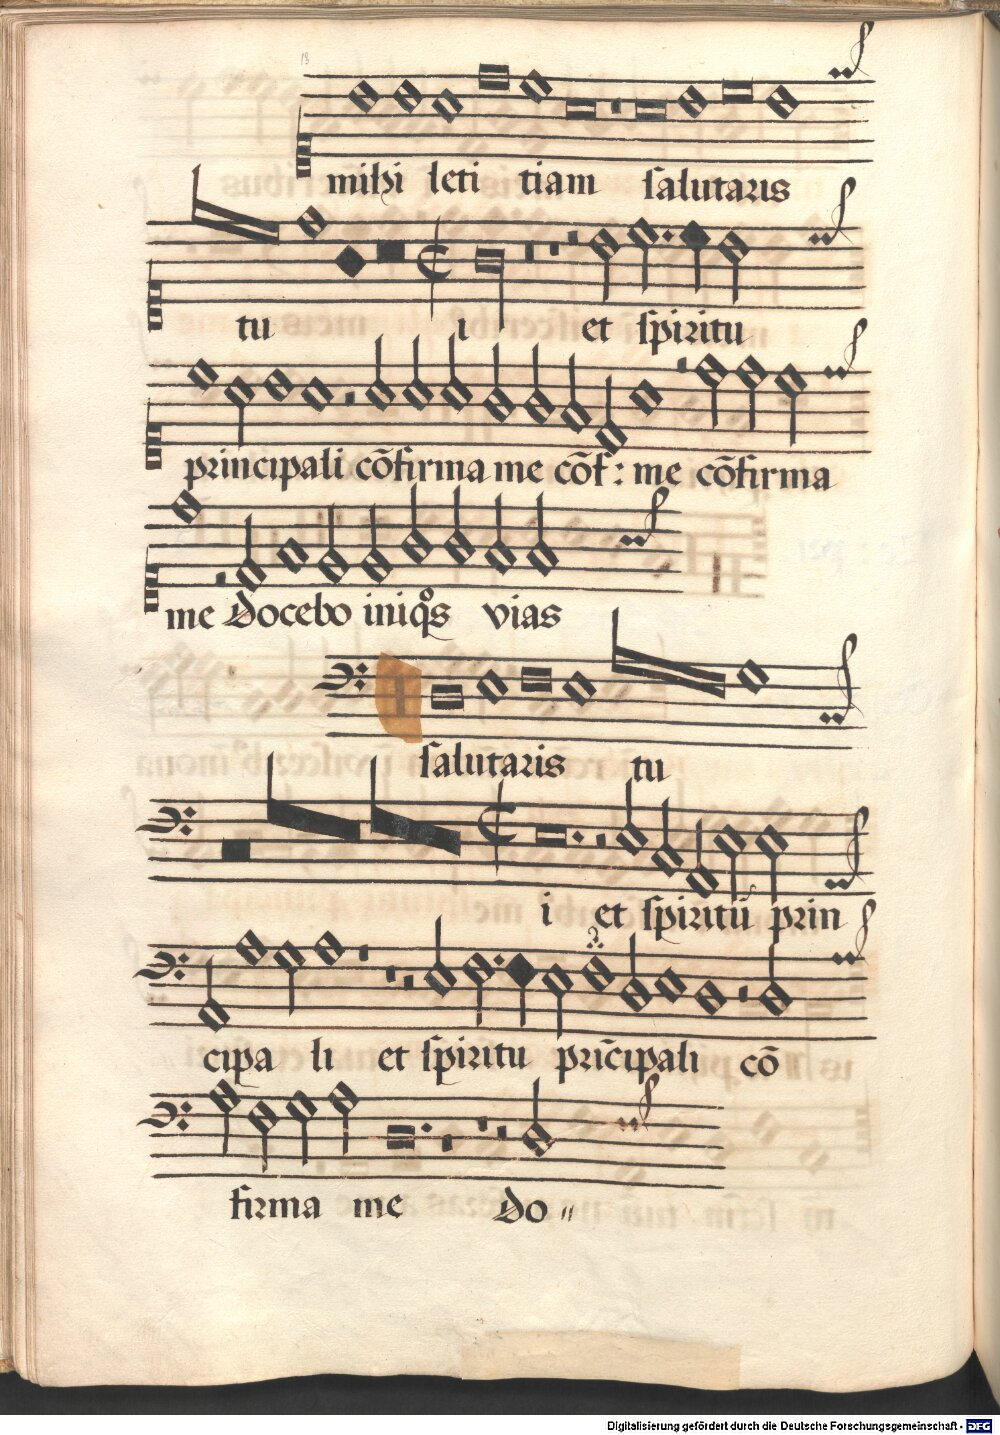 13
mihi leti tiam salutaris
tu i et spiritu
principali cõfirma me cõf: me cõfirma
me docebo iniqͦs vias
salutaris tu
i et spiritu prin
cipa li et spiritu prĩcipali cõ
firma me do〃
Digitalisierung gefördert durch die Deutsche Forschungsgemeinschaft - DFG